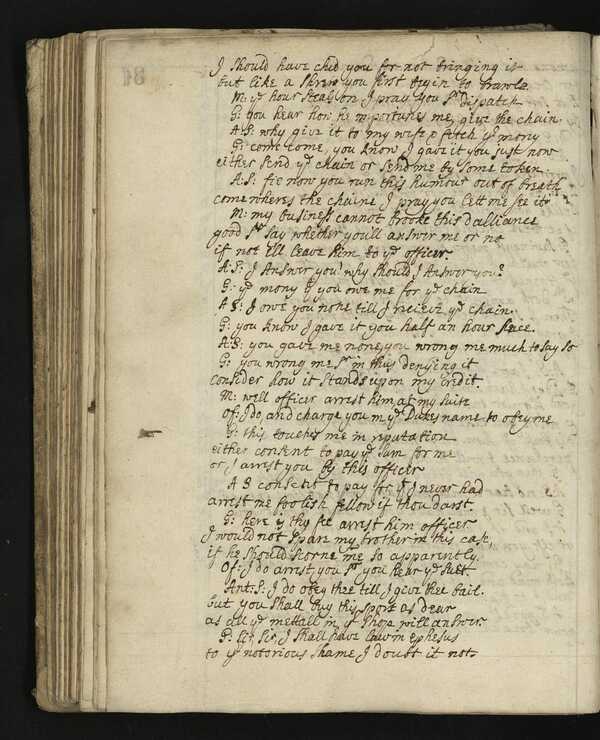 I should have chid you for not bringing it
but like a shrew you first begin to brawle
M: ye hour steals on I pray you Sr dispatch
G: you hear how he importunes me, give the chain.
A:S: why give it to my wife & fetch yr mony
G: come come, you know I gave it you just now
either send ye chain or send me by some token.
A.S: fie now you run this humour out of breath
come wheres the chaine I pray you lett me see it
M: my business cannot brooke this dalliance
good Sr say whether you'll answer me or no
if not Ill leave him to ye officer
A:S: I Answer you? why should I Answer you?
G: ye mony yt you owe me for ye chain
A:S: I owe you none till I recieve ye chain.
G: you know I gave it you half an hour since.
A:S: you gave me none, you wrong me much to say so
G: you wrong me Sr in this denying it
consider how it stands upon my credit.
M: well officer arrest him at my suite
Of: I do and charge you in ye Dukes name to obey me
G: this touches me in reputation
either consent to pay ye sum for me
or I arrest you by this officer
A S consent to pay for yt I never had
arrest me foolish fellow if thou darst.
G: here is thy fee arrest him officer
I would not spare my brother in this case,
if he should scorne me so apparently.
Of: I do arrest you Sr you hear ye suit.
Ant:S: I do obey thee till I give thee bail.
but you shall buy this sport as dear
as all ye mettall in yr shope will answer.
G: Sir, I shall have law in Ephesus
to yr notorious shame, I doubt it not.